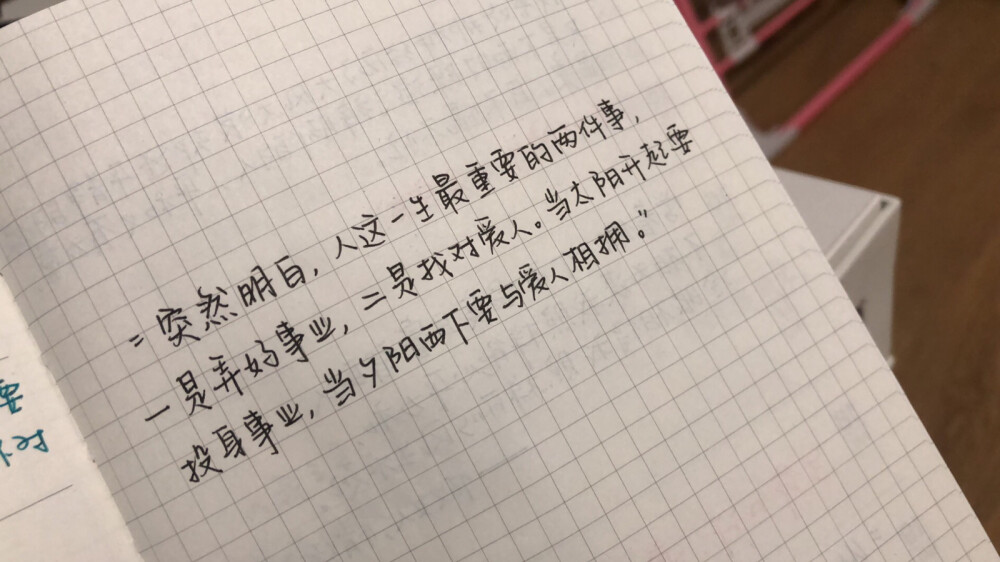 要
对
"突然明白，人这一生最重要的两件事，
一是弄好事业，二是找对爱人。当太阳升起要
投身事业，当夕阳西下要与爱人相拥。"